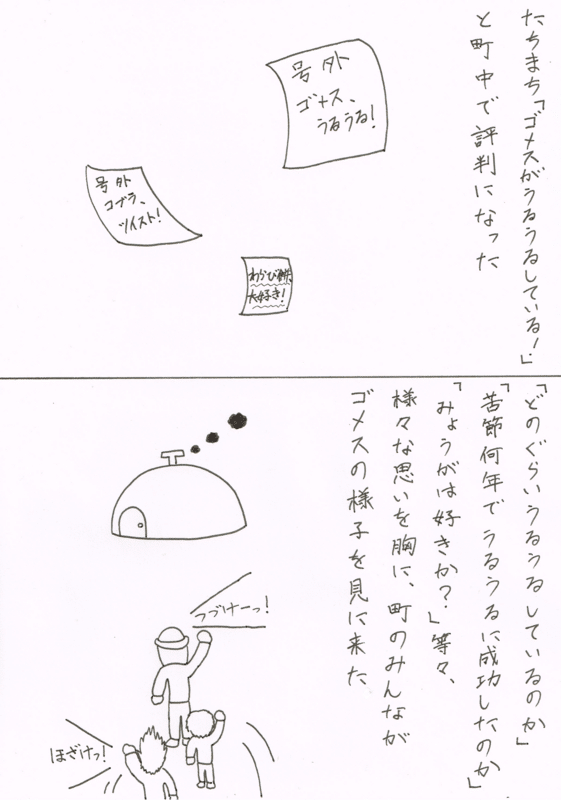 たちまち「ゴメスがうるうるしている!」
と町中で評判になった
号外
ゴメス、
うるうる!
号外
コブラ、
ツイスト!
わらび餅、
大好き!
「どのぐらいうるうるしているのか」
「苦節何年でうるうるに成功したのか」
「みょうがは好きか?」等々、
様々な思いを胸に、町のみんなが
ゴメスの様子を見に来た
つづけーっ!
ほざけっ!